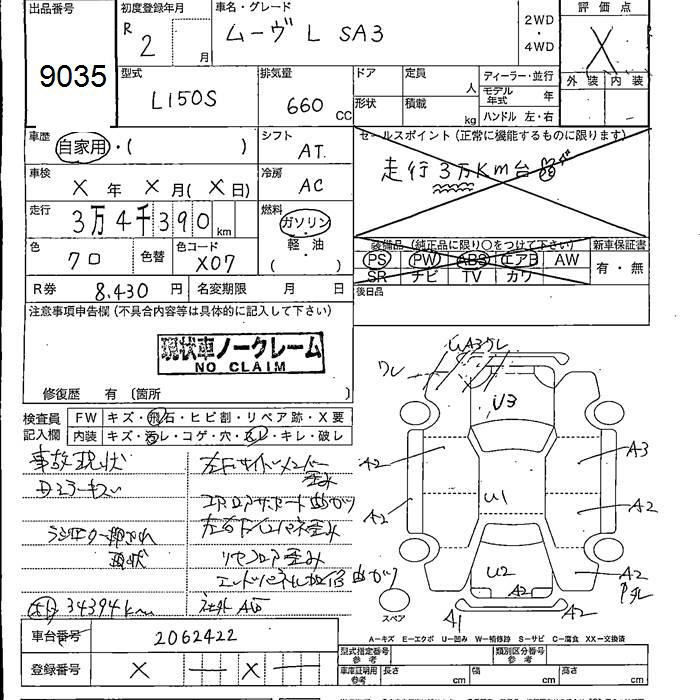 出品番号
9035
初度登録年月
R 2 月
車名・グレード
ムーヴ L SA3
2WD
4WD
評価点
X
外装 内装
型式
L150S
排気量
660 CC
ドア
形状
定員
人
積載
kg
ディーラー・並行
モデル年式 年
ハンドル 左・右
車歴
自家用・( )
シフト
AT
車検
X 年 X 月( X 日)
冷房
AC
走行
3万4千390 km
燃料
ガソリン
軽・油
( )
色
クロ
色替
色コード
X07
R券
8,430 円
名変期限 月 日
セールスポイント(正常に機能するものに限ります)
走行3万Km台
装備品(純正品に限り○をつけて下さい)
PS PW ABS エアB AW
SR ナビ TV カワ
新車保証書
有・無
後日品
注意事項申告欄(不具合内容等は具体的に記入して下さい)
現状車ノークレーム
NO CLAIM
修復歴 有 〔箇所 〕
検査員記入欄
FW キズ・飛石・ヒビ割・リペア跡・X要
内装 キズ・汚レ・コゲ・穴・スレ・キレ・破レ
事故現状
ラジエター押され
現状
34394km
左Fサイドメンバー
歪み
リヤフロア歪み
社外AW
A3ワレ
ワレ
U3
A2
A3
A2
U1
A2
U2
A2
A2
A1
A2
スペア
A−キズ E−エクボ U−凹み W−補修跡 S−サビ C−腐食 XX−交換済
車台番号
2062422
登録番号
X X
型式指定番号
参考
類別区分番号
参考
車庫証明用
参考
長さ cm
幅 cm
高さ cm